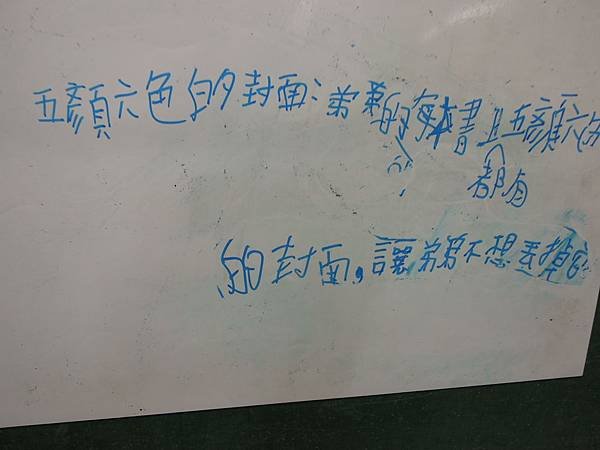 五顏六色的封面：弟弟的每本書上五顏六色
都有
的封面，讓弟弟不想丟掉它